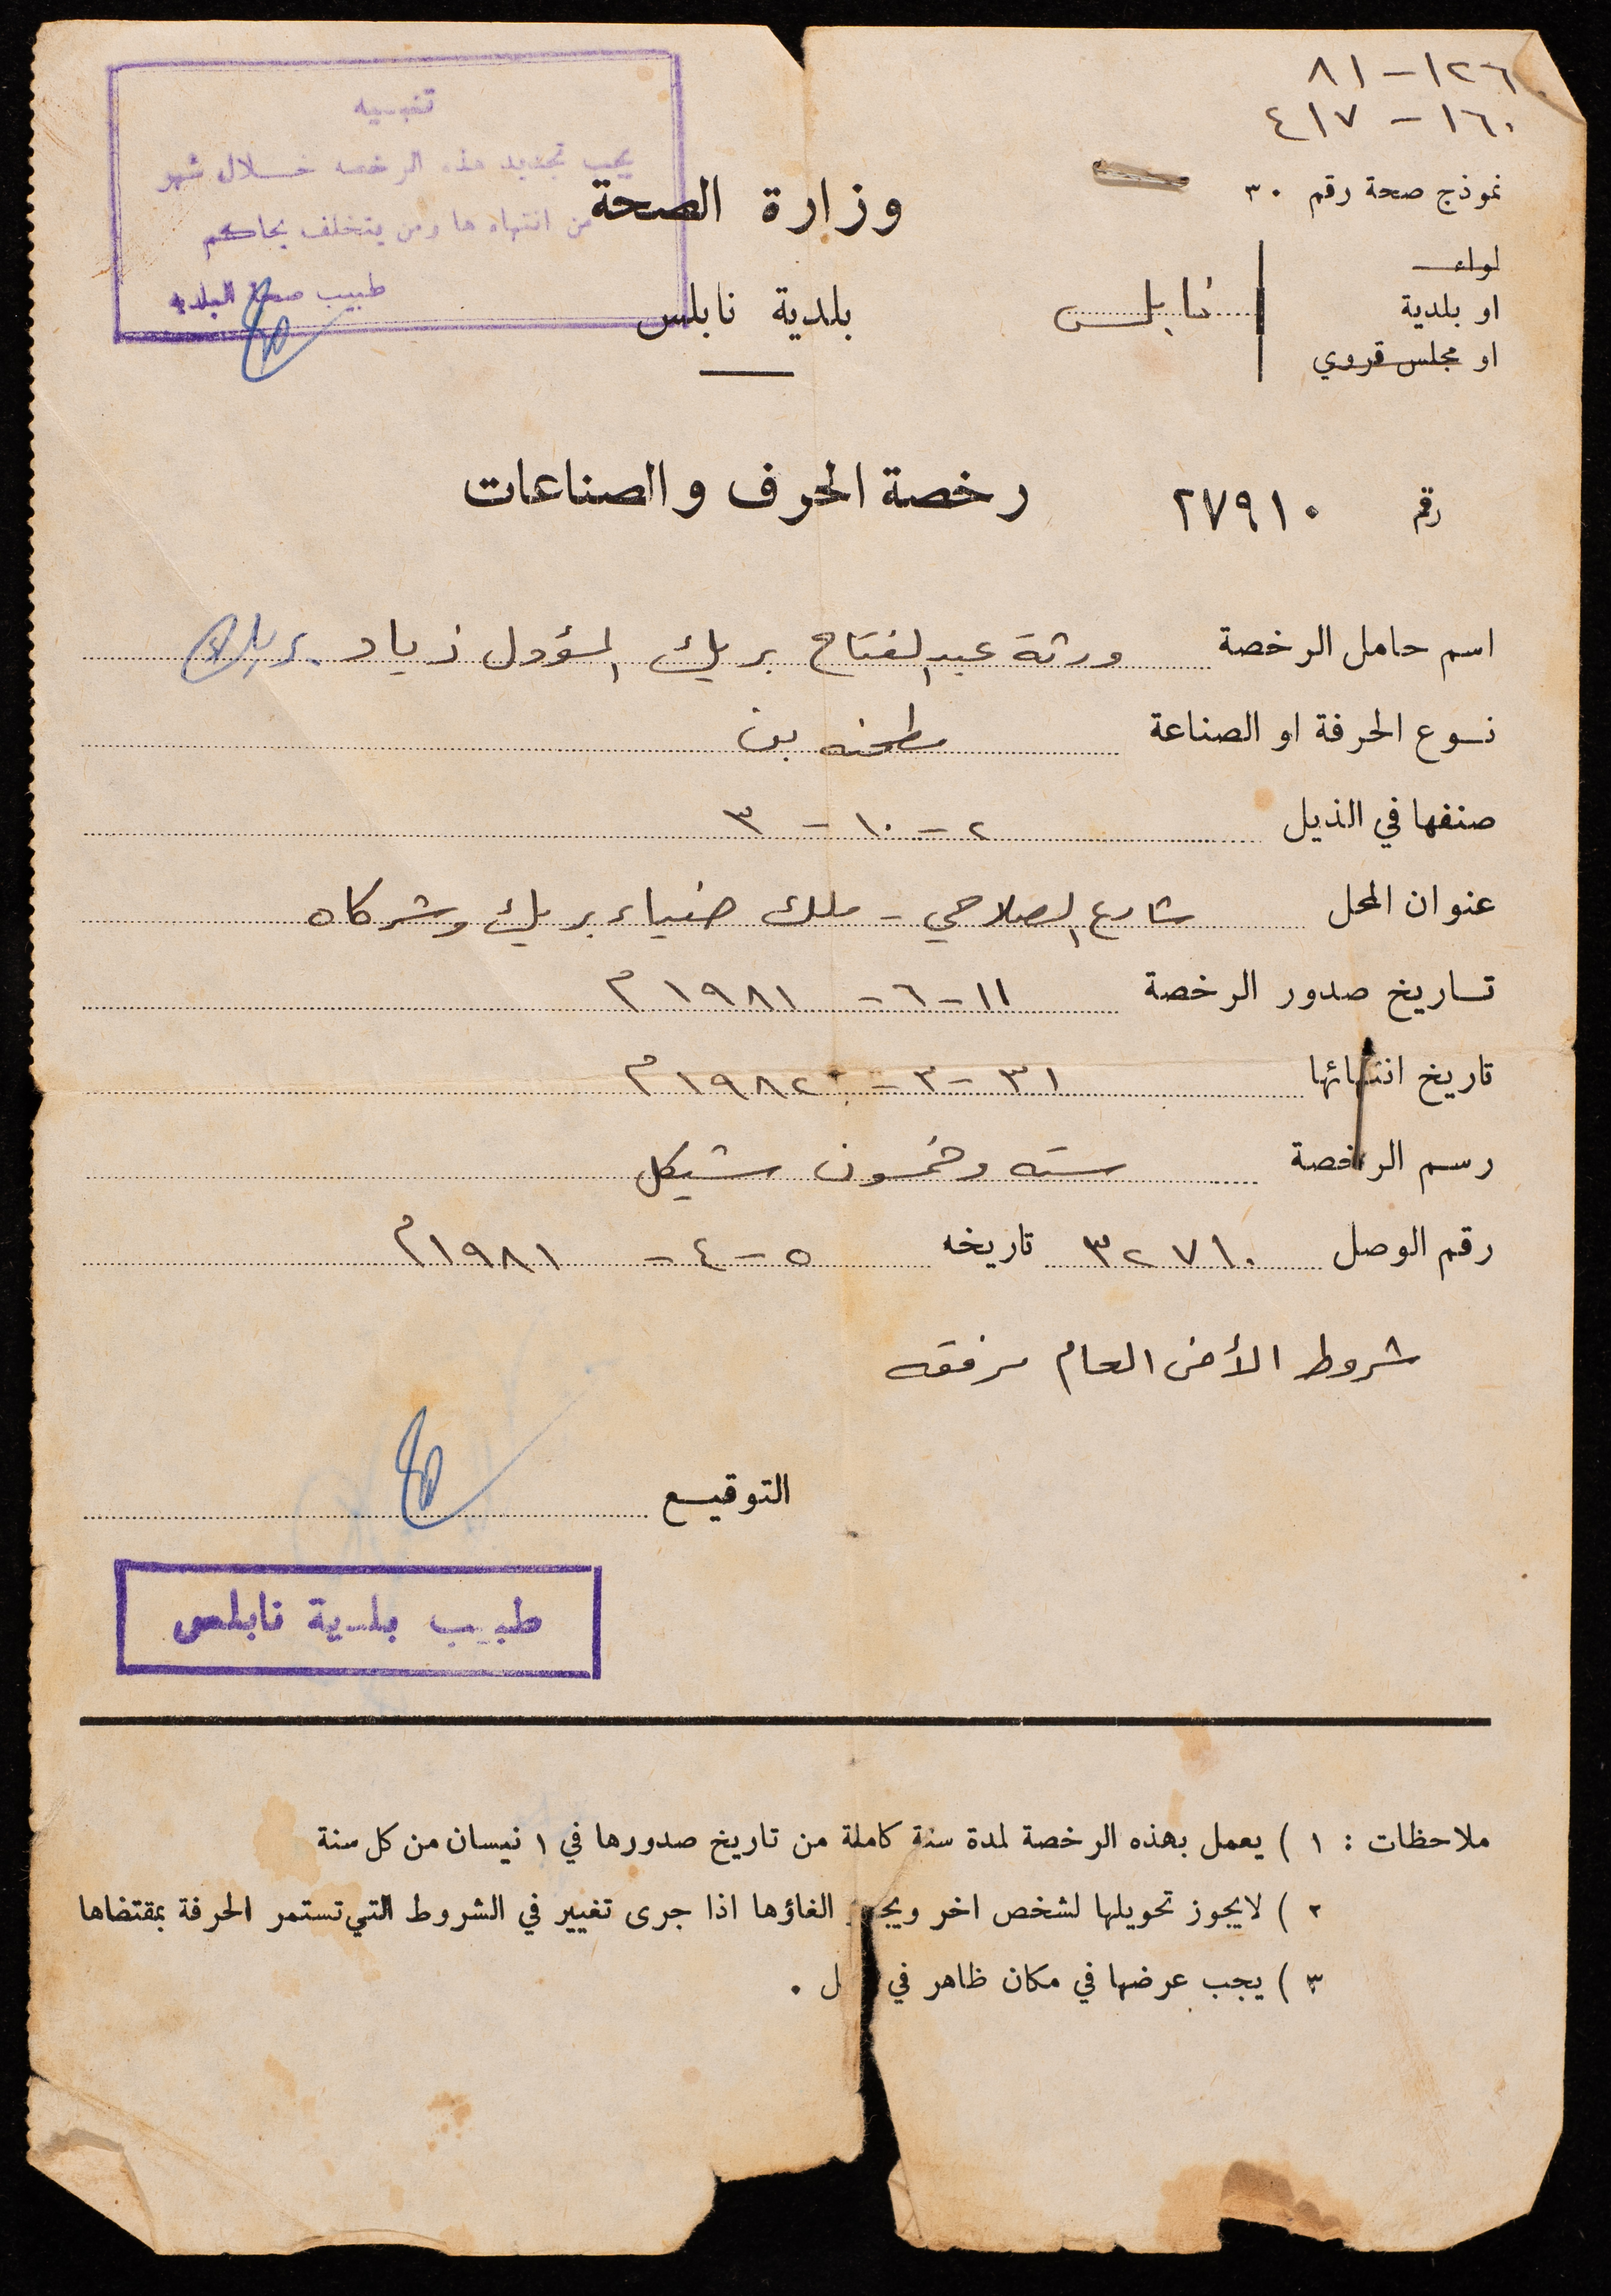 ١٢٦ - ٨١
١٦٠ - ٤١٧
نموذج صحة رقم ٣٠
لواء
او بلدية
او مجلس قروي
نابلس
وزارة الصحة
بلدية نابلس
تنبيه
يجب تجديد هذه الرخصه خلال شهر
من انتهاءها ومن يتخلف يحاكم
طبيب صحة البلديه
رقم ٢٧٩١٠
رخصة الحرف والصناعات
اسم حامل الرخصة ورثة عبد الفتاح بريك المسؤول زياد بريك
نوع الحرفة او الصناعة مطحنه بن
صنفها في الذيل ٢ - ١٠ - ٣
عنوان المحل شارع الصلاحي - ملك ضياء بريك وشركاه
تاريخ صدور الرخصة ١١ - ٦ - ١٩٨١ م
تاريخ انتهائها ٣١ - ٣ - ١٩٨٢ م
رسم الرخصة سته وخمسون شيكل
رقم الوصل ٣٢٧١٠ تاريخه ٥ - ٤ - ١٩٨١ م
شروط الأمن العام مرفقه
التوقيع
طبيب بلدية نابلس
ملاحظات : ١ ) يعمل بهذه الرخصة لمدة سنة كاملة من تاريخ صدورها في ١ نيسان من كل سنة
٢ ) لايجوز تحويلها لشخص اخر ويجوز الغاؤها اذا جرى تغيير في الشروط التي تستمر الحرفة بمقتضاها
٣ ) يجب عرضها في مكان ظاهر في .